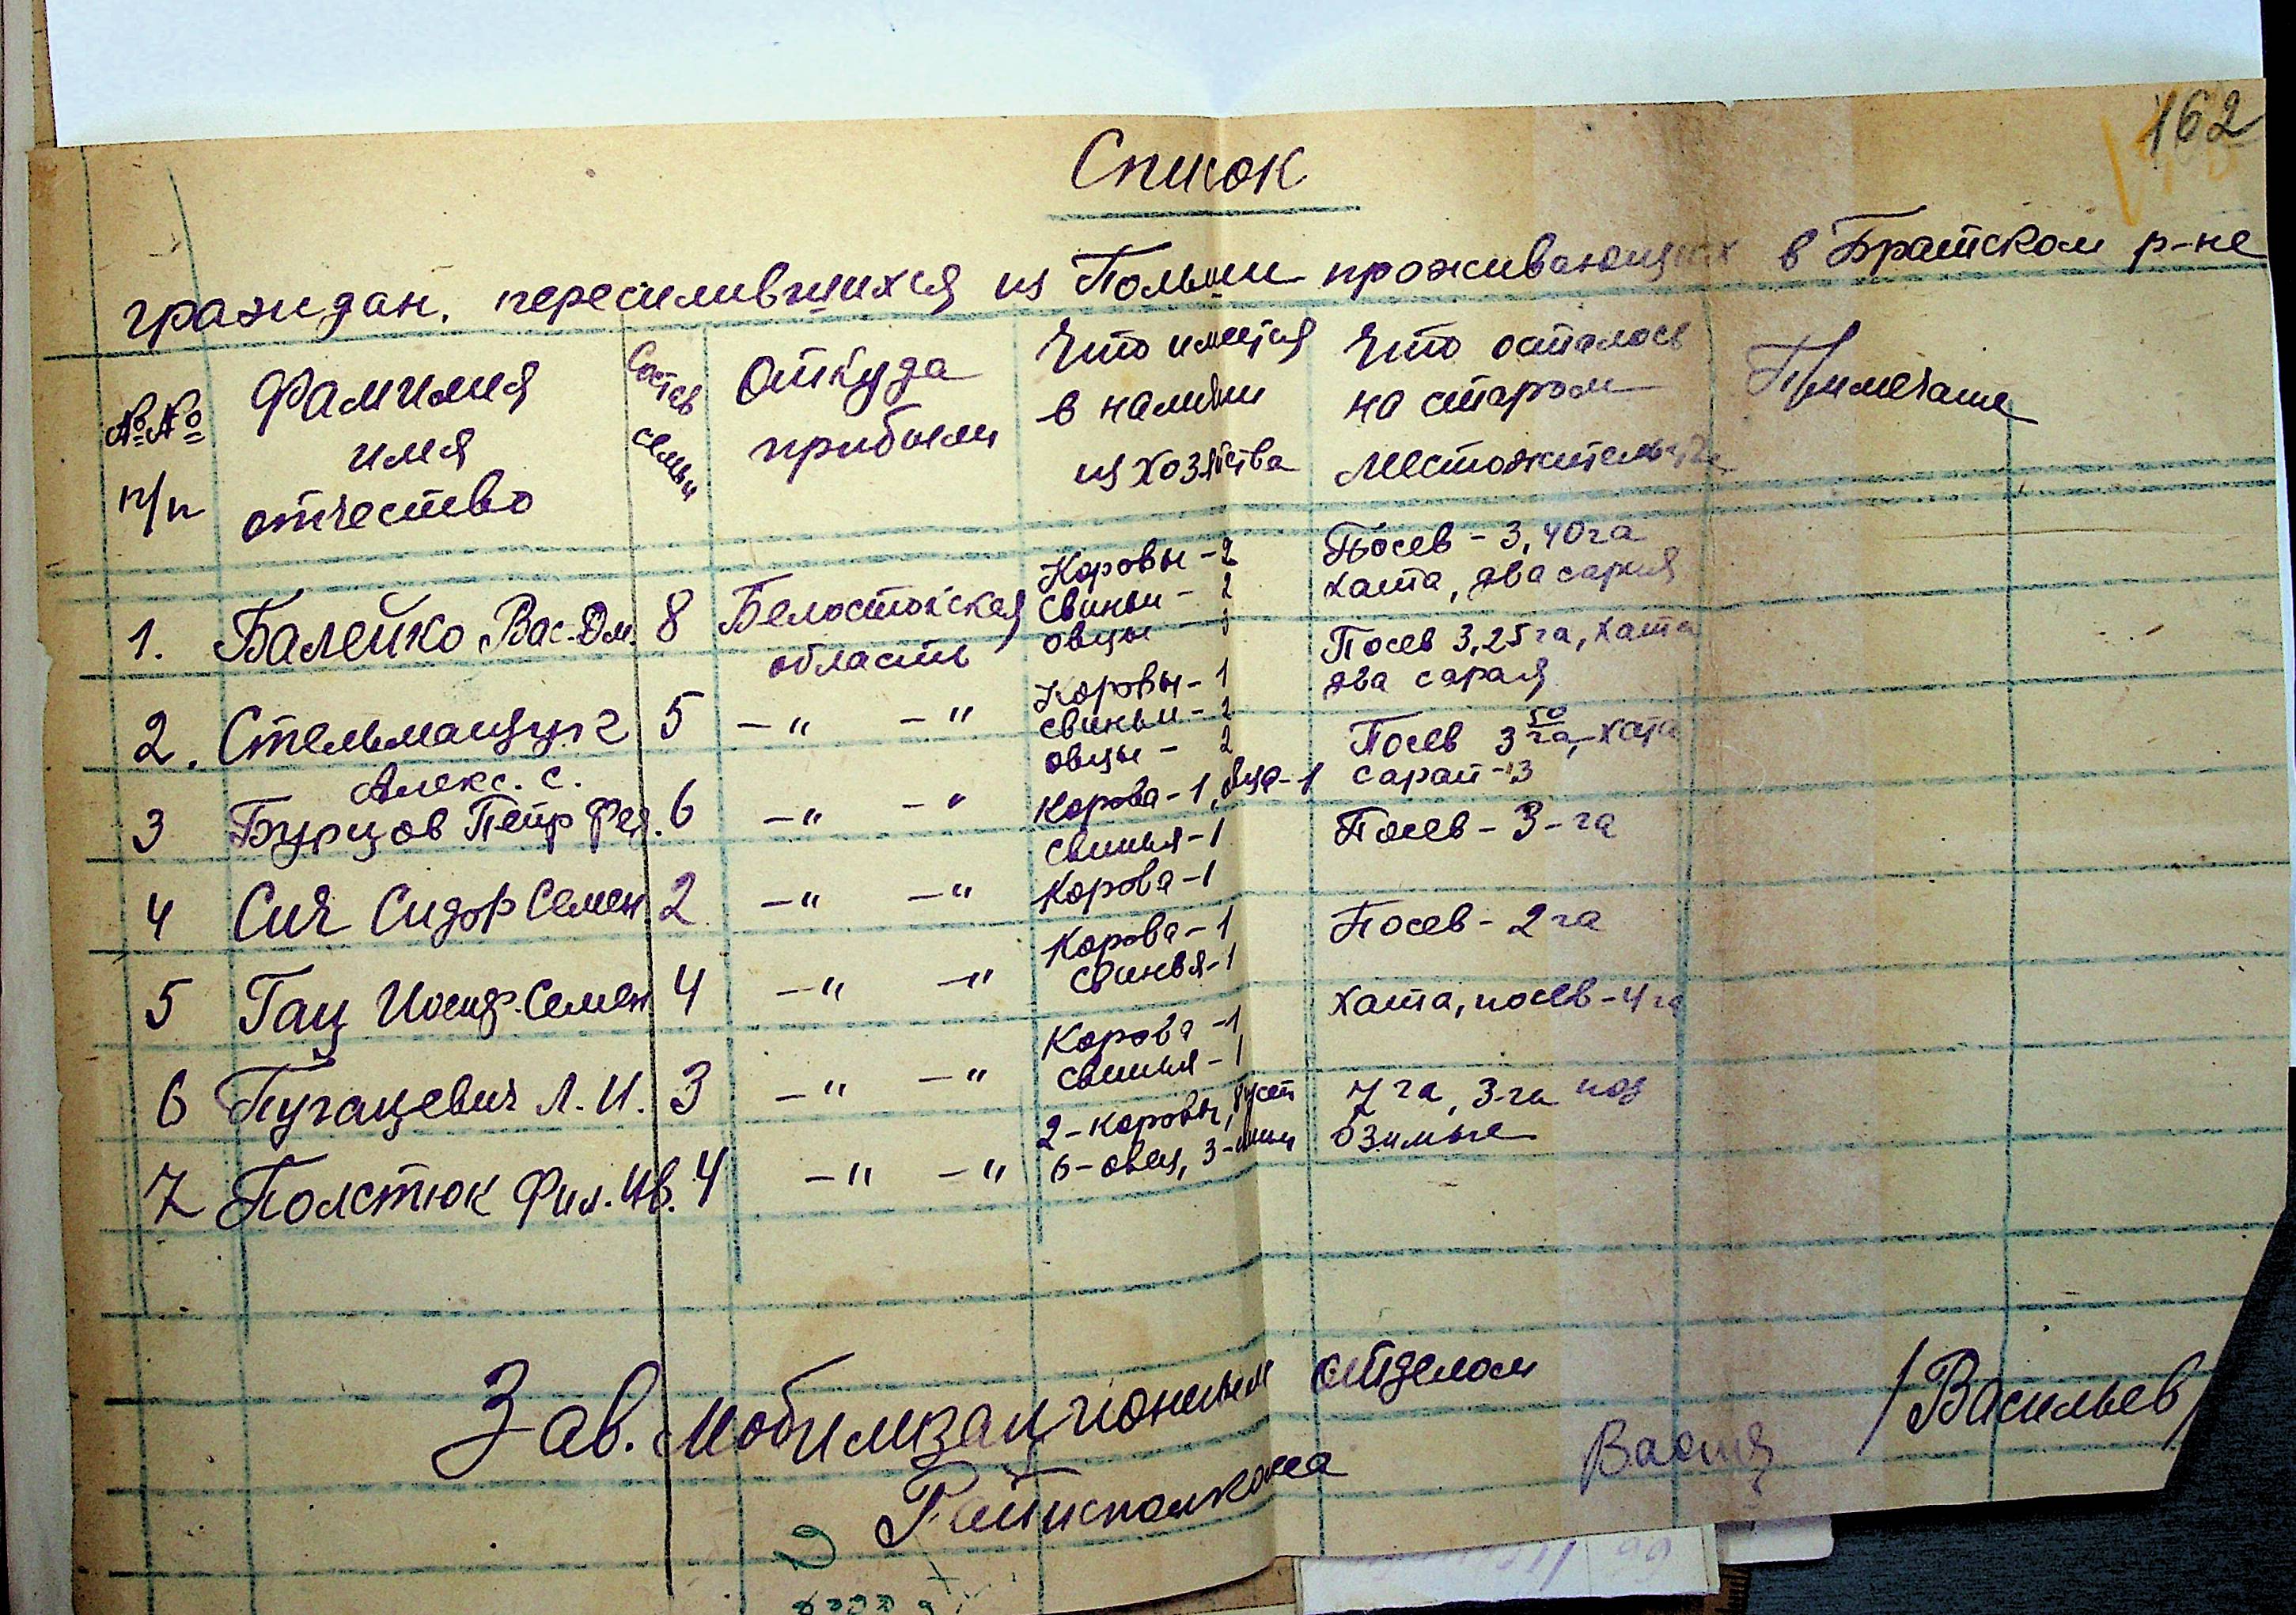 162
Список
граждан. переселившихся из Польши проживающих в Братском р-не
№№ п/п
Фамилия имя отчество
Состав семьи
Откуда прибыли
Что имеется в наличии из хозяйства
Что осталось на старом местожительстве
Примечание
1. Балейко Вас. Дм. 8 Белостокская область
Коровы - 2
свиньи - 2
овцы - 3
Посев - 3,40 га
хата, два сарая
2. Стельмащук Алекс. С. 5 -"- -"
Коровы - 1
свиньи - 2
овцы - 2
Посев 3,25 га, хата
два сарая
3 Бурцов Петр Фед. 6 -" -"
Корова - 1, овца - 1
свинья - 1
Посев 3 50 га, хата
сарай - 3
4 Сич Сидор Семен 2 -" -"
Корова - 1
Посев - 3 - га
5 Гац Иосиф. Семен 4 -" -"
Корова - 1
свинья - 1
Посев - 2 га
6 Пугацевич Л. И. 3 -" -"
Корова - 1
свинья - 1
Хата, посев - 4 га
7 Полстюк Фил. Ив. 4 -" -"
2 - коровы,
6 - овец, 3 -
7 га, 3 - га под
озимые
Зав. мобилизационным отделом
Райисполкома
/Васильев/